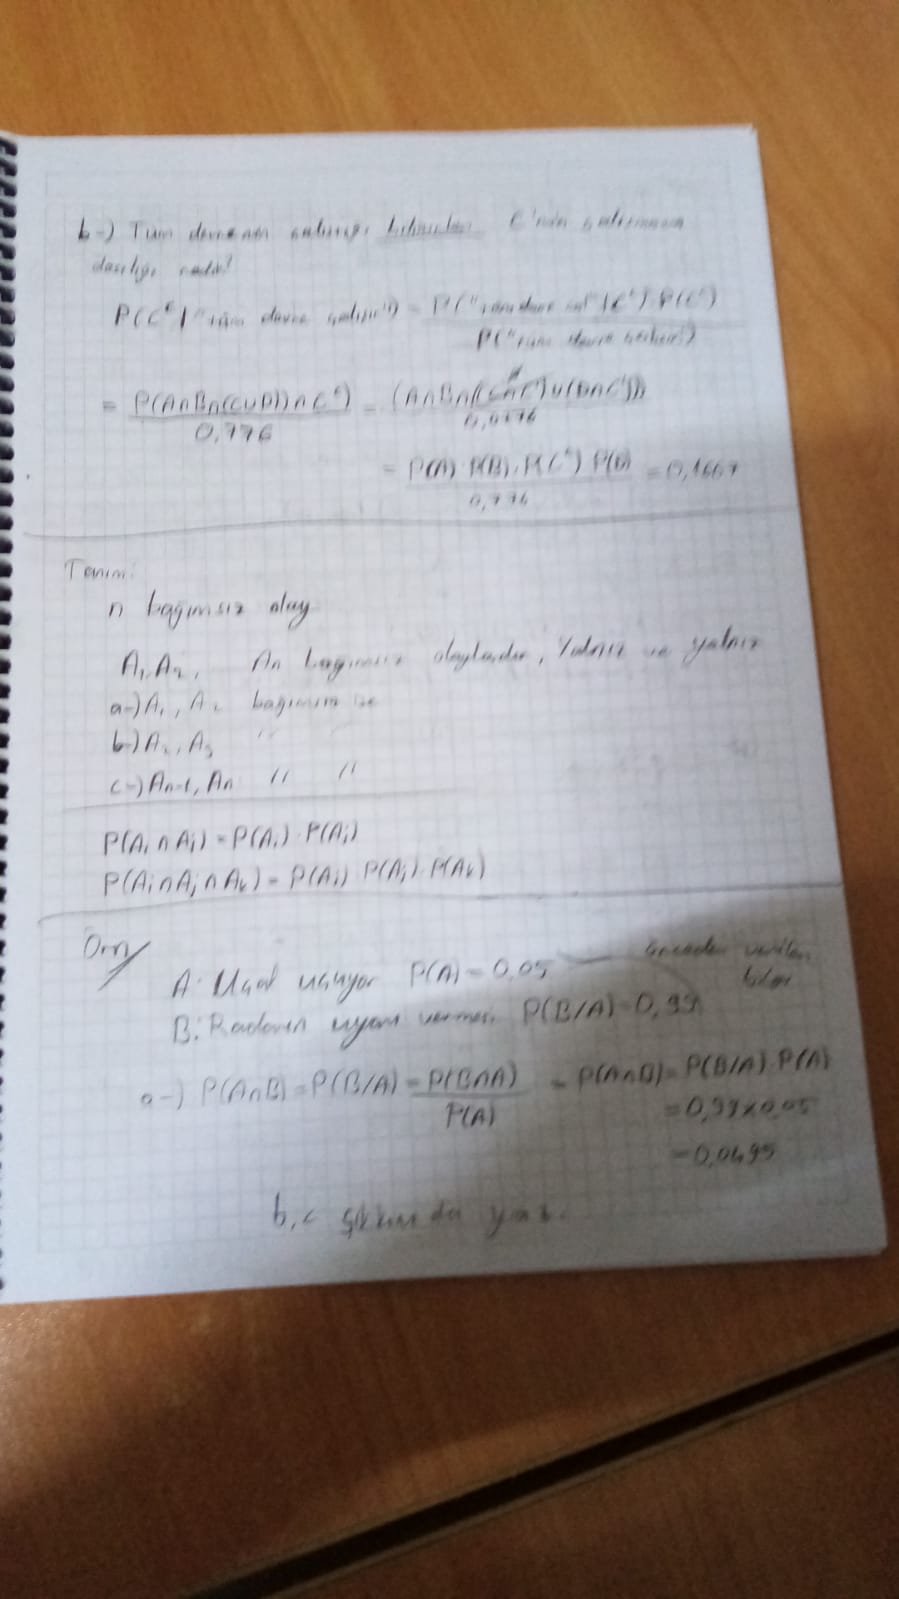 b-) Tüm devrenin çalıştığı bilindiğine C'nin çalışmama
olasılığı nedir?
P(C^c | "tüm devre çalışır") = P("tüm devre çal" | C^c) P(C^c) / P("tüm devre çalışır")
= P(A∩B∩(C∪D))∩C^c) / 0,776 = (A∩B∩((C∩C^c)∪(D∩C^c))) /
= P(A) · P(B) · P(C^c) P(D) / 0,776 = 0,1667
Tanım:
n bağımsız olay
A₁, A₂, An bağımsız olaylardır, Yalnız ve yalnız
a-) A₁, A₂ bağımsız ise
b-) A₂, A₃ "
c-) An-1, An " "
P(Ai∩Aj) = P(Ai) · P(Aj)
P(Ai∩Aj∩Ak) = P(Ai) · P(Aj) · P(Ak)
Örn/
A: Uçak uçuyor P(A) = 0,05 önceden verilen
bilgi
B: Radarın uyarı vermesi P(B/A) = 0,99
a-) P(A∩B) = P(B/A) = P(B∩A) / P(A) = P(A∩B) = P(B/A) · P(A)
= 0,99x0,05
= 0,0495
b, c şıkkını da yaz.